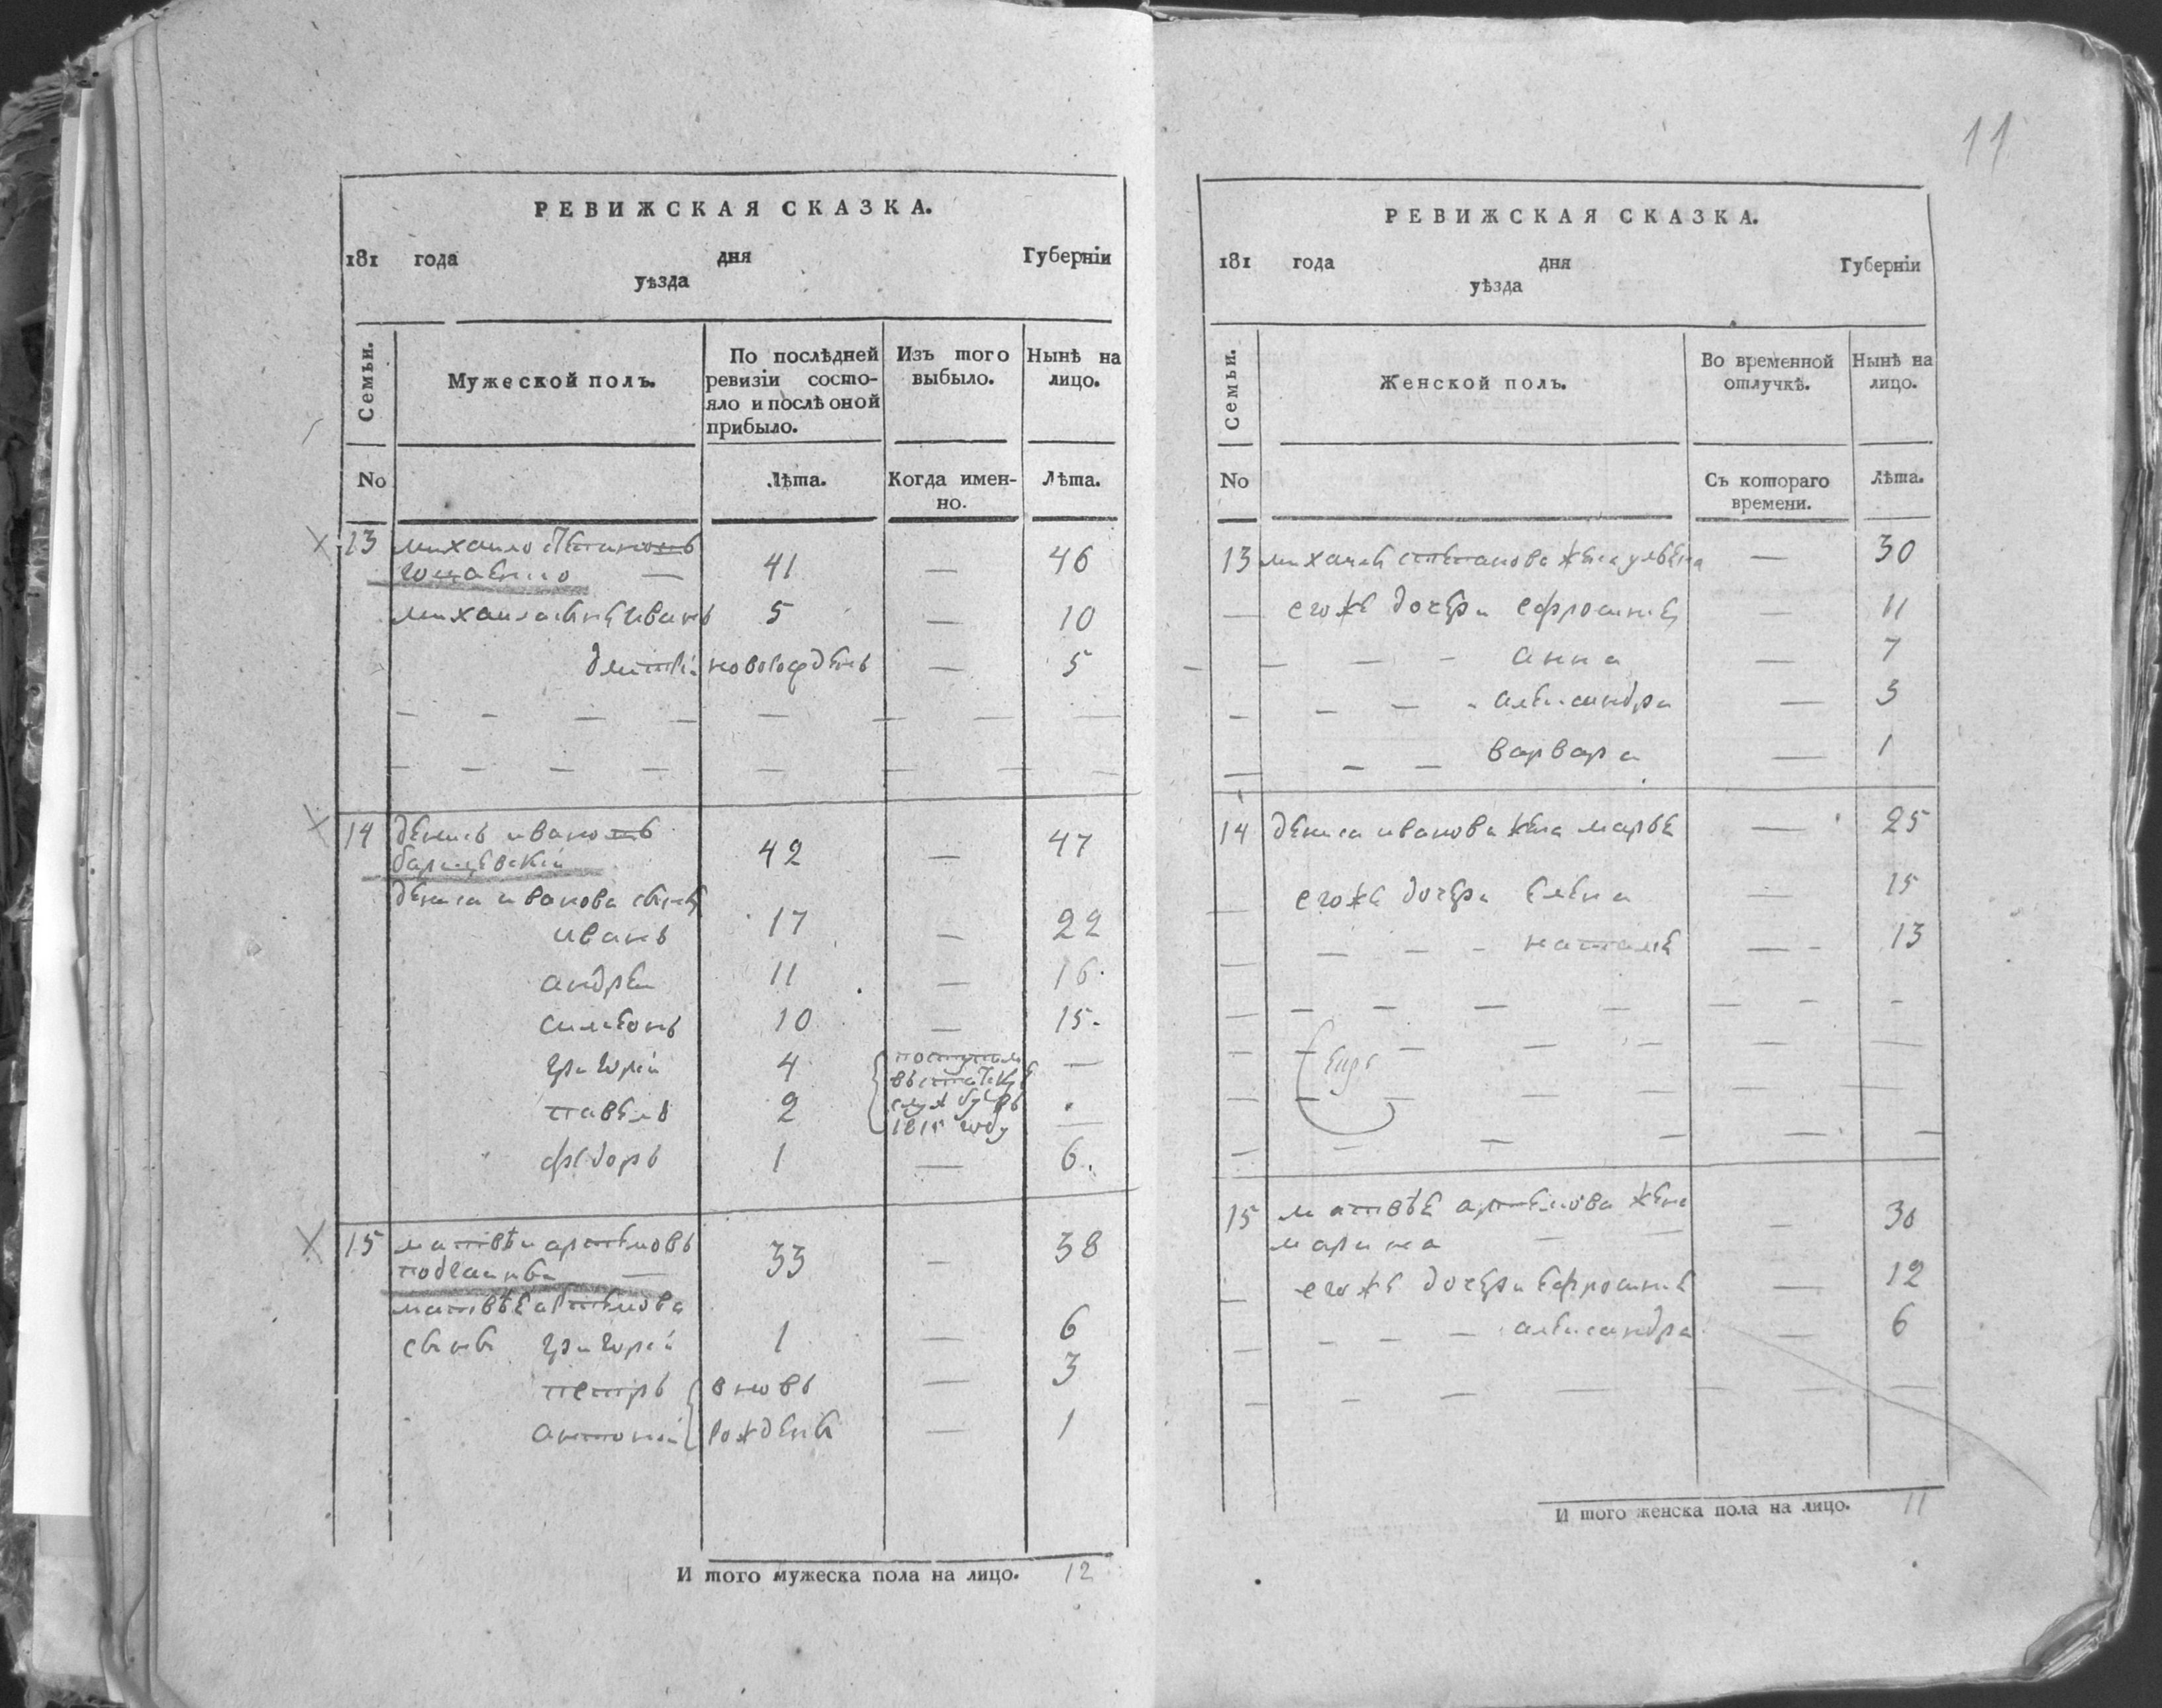 РЕВИЖСКАЯ СКАЗКА.
181 года дня Губерніи
уѣзда
Семьи. Мужеской полъ. По послѣдней ревизіи состо- Изъ того Нынѣ на
яло и послѣ оной прибыло. выбыло. лицо.
No Лѣта. Когда имен- Лѣта.
но.
13 михаило степановъ
41 — 46
михаила сынъ иванъ 5 — 10
новорожденъ — 5
14 денисъ ивановъ
барщевскій 42 — 47
дениса иванова сынъ
иванъ 17 — 22
андрей 11 — 16
симеонъ 10 — 15
григорій 4 поступили —
павелъ 2 службу въ
1815 году —
федоръ 1 — 6
15 матвѣй артемовъ 33 — 38
матвѣя артемова
сынъ григорій 1 — 6
петръ вновь — 3
антоній рождены — 1
И того мужеска пола на лицо. 12
11
РЕВИЖСКАЯ СКАЗКА.
181 года дня Губерніи
уѣзда
Семьи. Женской полъ. Во временной Нынѣ на
отлучкѣ. лицо.
No Съ котораго Лѣта.
времени.
13 степанова жена — 30
егоже дочери — 11
— — — анна — 7
— — — александра — 3
— — варвара — 1
14 дениса иванова жена — 25
— егоже дочери елена — 15
— — — — 13
15 артемова жена — 30
марина
— егоже дочери — 12
— — — александра — 6
И того женска пола на лицо. 11